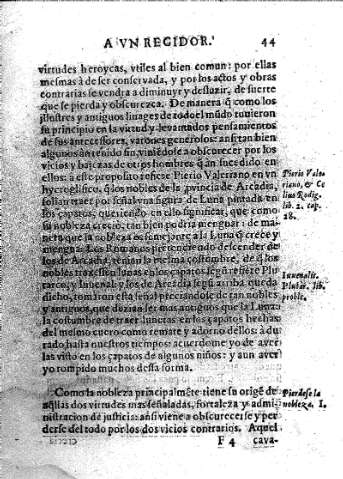 A VN REGIDOR. 44
virtudes heroycas, vtiles al bien comun: por ellas
mesmas à de ser conservada, y por los actos y obras
contrarias se vendra a diminuyr y desluzir, de suerte
que se pierda y obscurezca. De manera q̃ como los
illustres y antiguos linages de todo el mũdo tuvieron
su principio en la virtud y levantados pensamientos
de sus antecessores, varones generosos: ansi tan bien
algunos an tenido fin, viniẽdose a obscurecer por los
vicios y baxezas de otros hombres q̃ an sucedido en
ellos: a este proposito refiere Pierio Valeriano en vn
hyeroglifico, q̃ los nobles de la provincia de Arcadia,
solian traer por señal vna figura de Luna pintada en
los çapatos, queriendo en ello significar, que como
su nobleza crecio, tan bien podria menguar: de ma-
nera que la nobleza es semejante a la Luna q̃ crece y
mengua. Los Romanos pretendiendo descender de
los de Arcadia, tenian la mesma costumbre, de q̃ los
nobles traxessen lunas en los çapatos segũ refiere Plu
tarco, y Iuuenal: y los de Arcadia segũ arriba queda
dicho, tomaron esta señal preciandose de tan nobles
y antiguos, que dezian ser mas antiguos que la Luna:
la costumbre de traer lunetas en los çapatos hechas
del mesmo cuero como remate y adorno dellos: à du
rado hasta nuestros tiempos: acuerdome yo de aver
las visto en los çapatos de algunos niños: y aun aver
yo rompido muchos dessa forma.
Pierio Vale-
riano, & Ce
lius Rodig.
lib. 2. cap.
28.
Iuuenalis.
Plutar. lib.
proble.
Como la nobleza principalmẽte tiene su origẽ de
aq̃llas dos virtudes mas señaladas, fortaleza y admi-
nistracion de justicia: ansi viene a obscurecerse y per-
derse del todo por los dos vicios contrarios. Aquel
Pierdese la
nobleza. I.
F 4 cava-